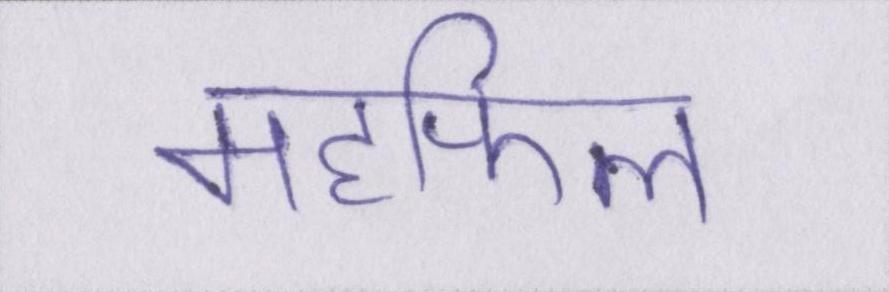 महफिल